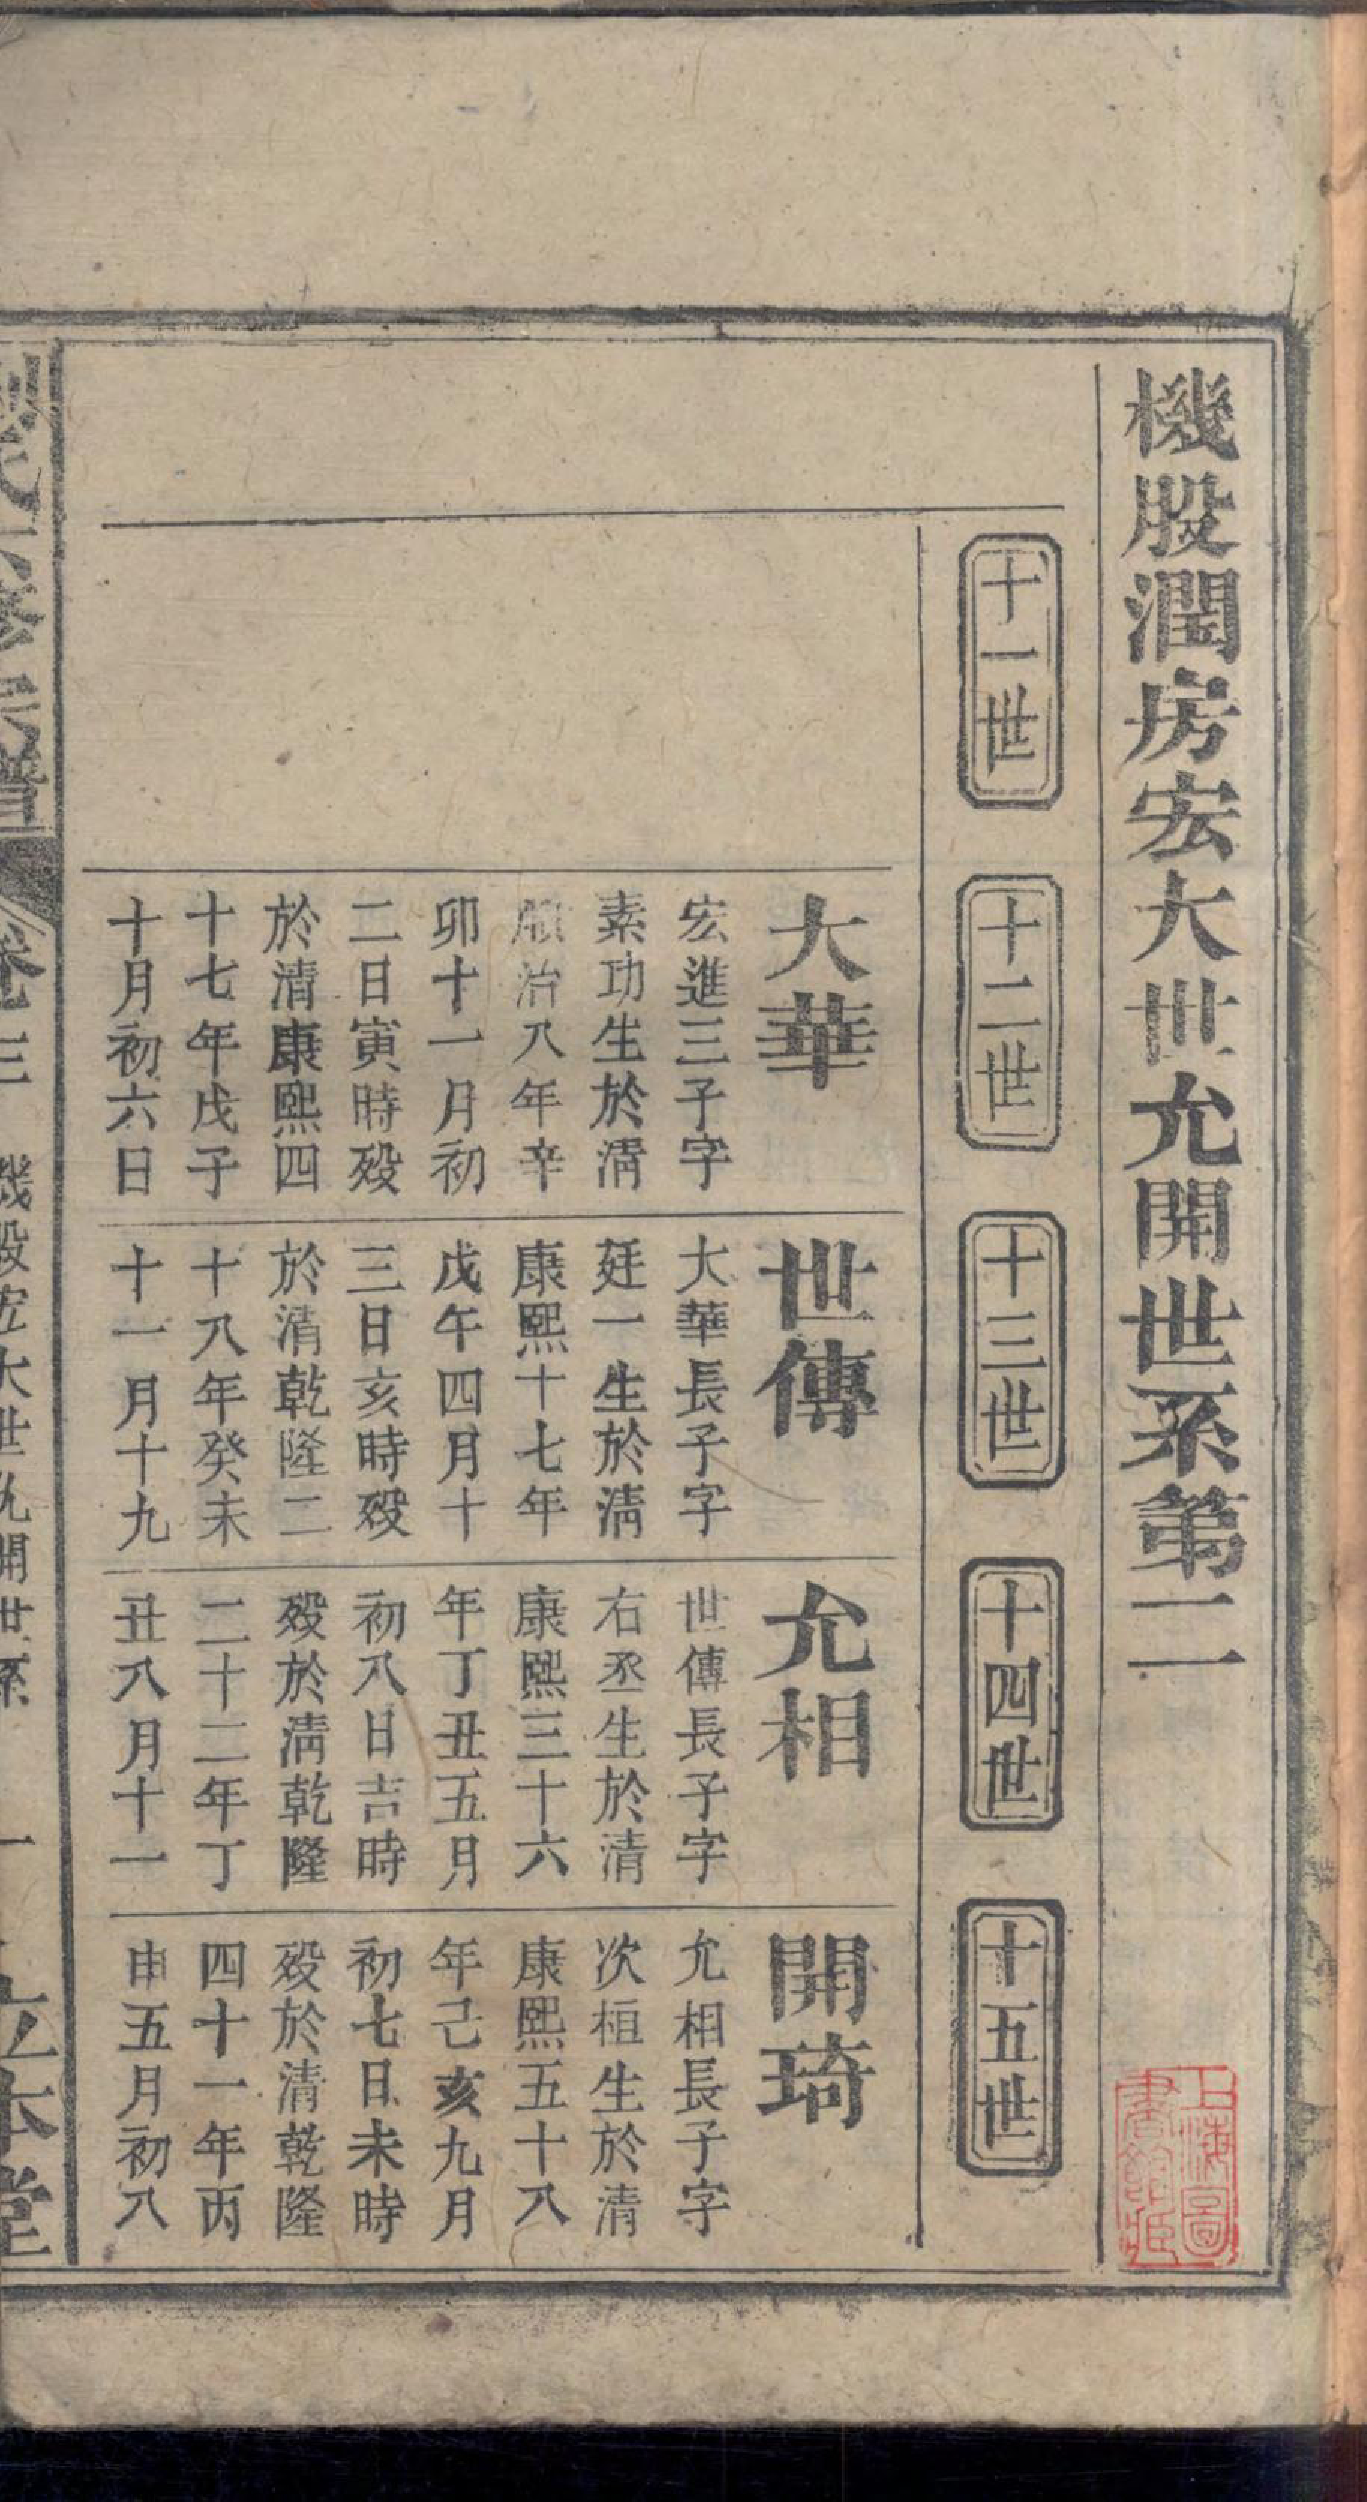 機股潤房宏大世允開世系第二
十一世
十二世
十三世
十四世
十五世
大華
宏進三子字
素功生於淸
順治八年辛
卯十一月初
二日寅時殁
於清康熙四
十七年戊子
十月初六日
世傳
大華長子字
廷一生於淸
康熙十七年
戊午四月十
三日亥時殁
於清乾隆二
十八年癸未
十一月十九
允相
世傳長子字
右丞生於清
康熙三十六
年丁丑五月
初八日吉時
殁於淸乾隆
二十二年丁
丑八月十一
開琦
允相長子字
次桓生於清
康熙五十八
年己亥九月
初七日未時
殁於清乾隆
四十一年丙
申五月初八
上海圖
書館藏
氏
修
譜
卷三
機股宏大世允開世系
一
立本堂